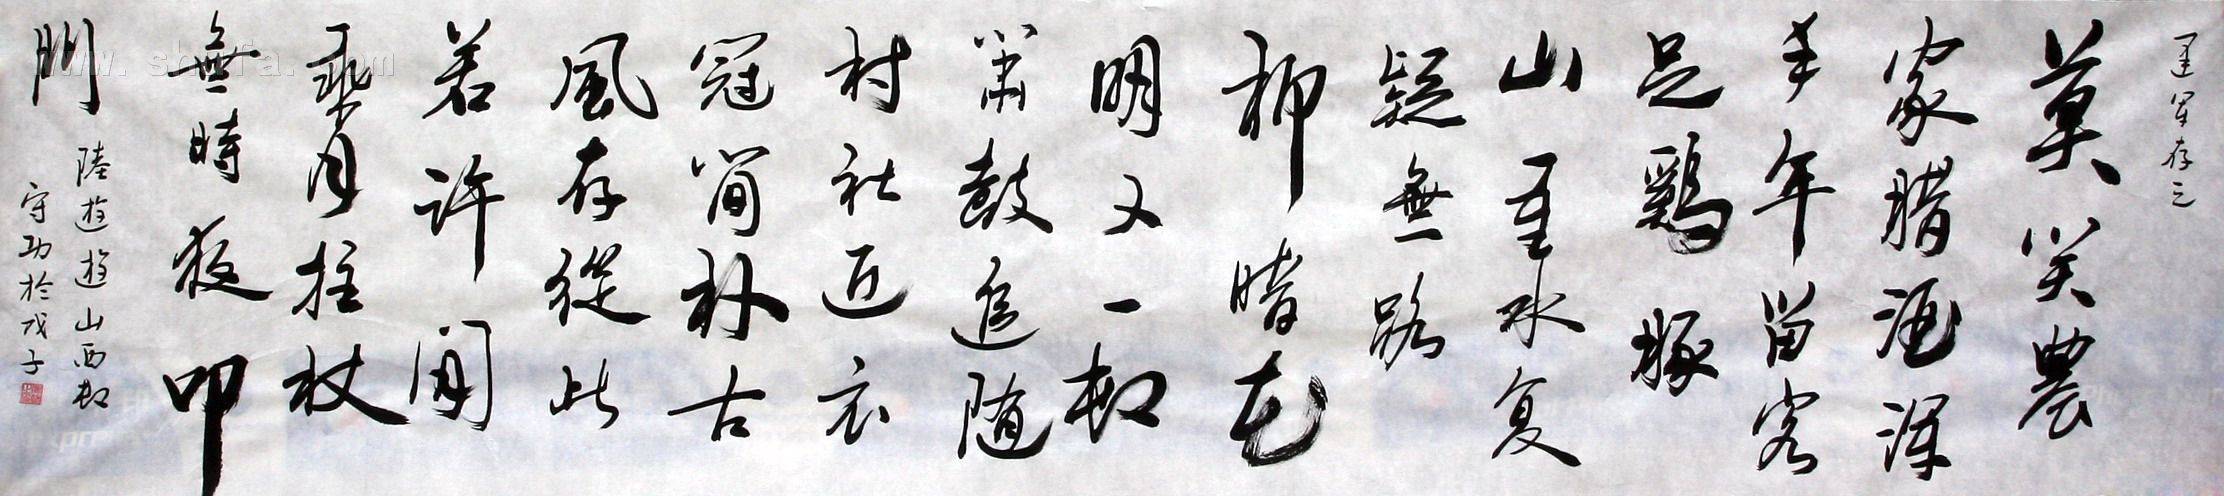 军存之
莫笑農
家腊酒渾
丰年留客
足鷄豚
山重水复
疑無路
柳暗花
明又一邨
箫鼓追随
村社近衣
冠简朴古
風存從此
若许閑
乘月拄杖
無時夜叩
門
陸遊遊山西邨
守功於戊子
www.shufa.com